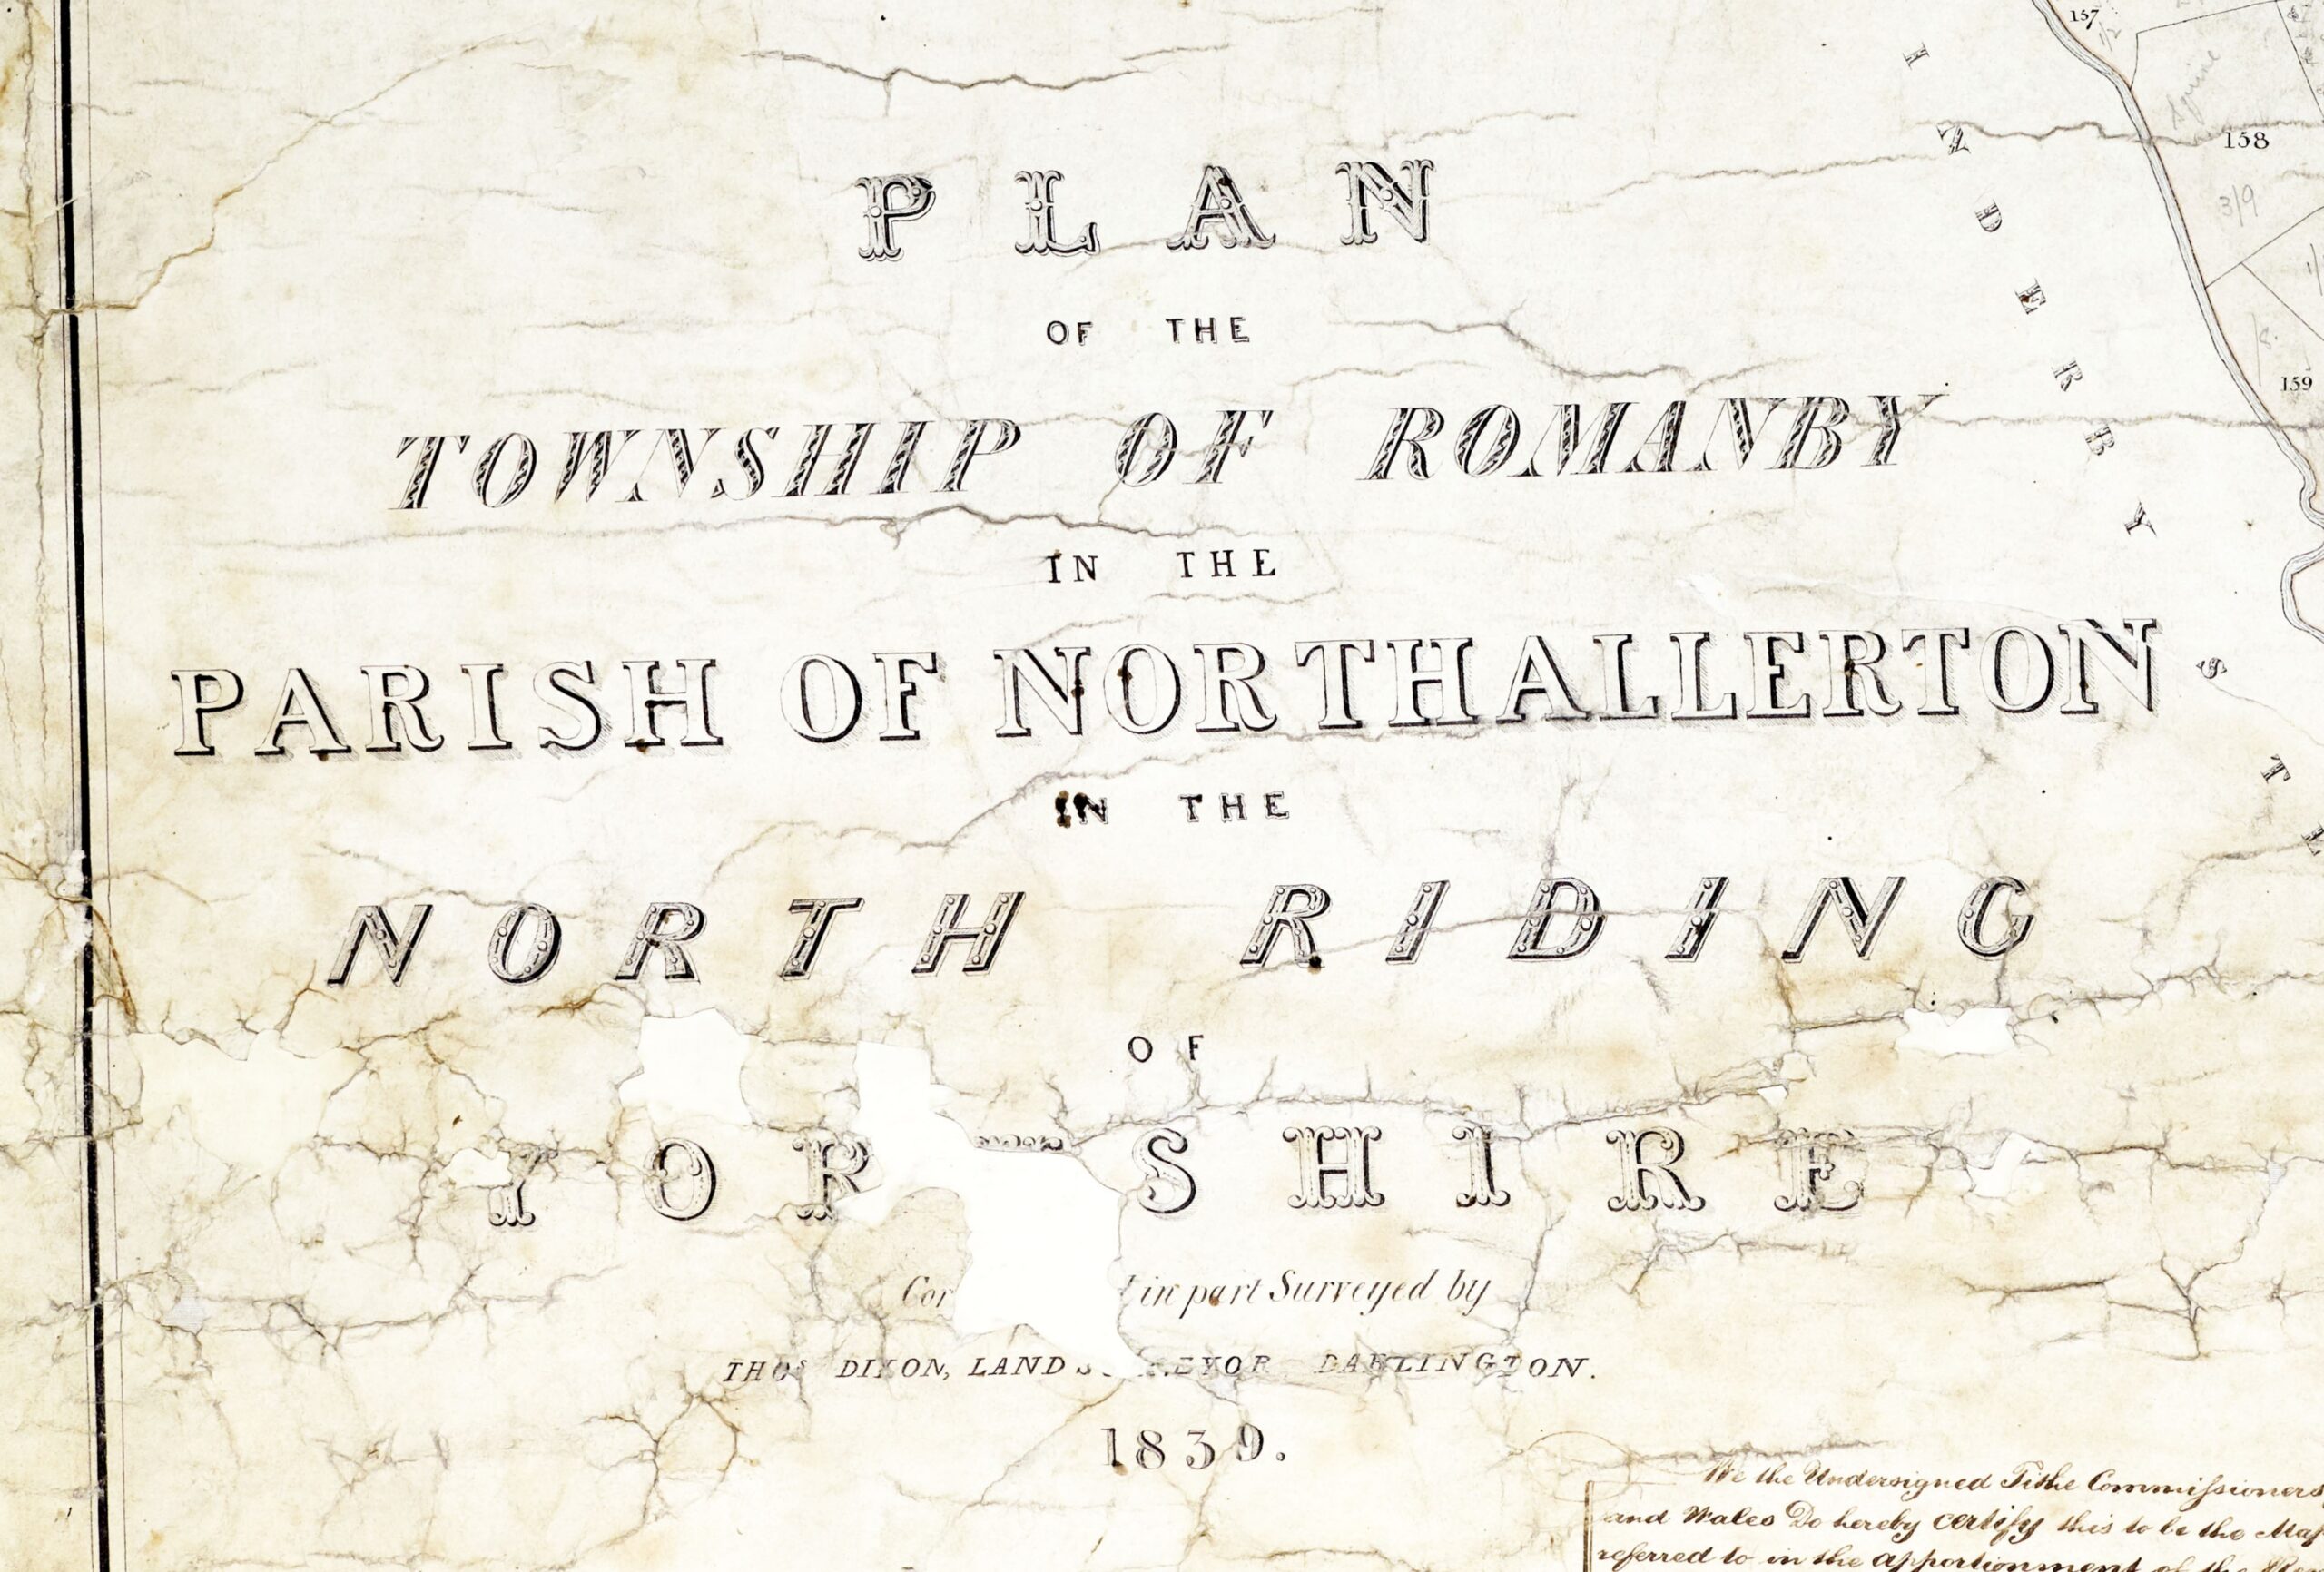 PLAN
OF THE
TOWNSHIP OF ROMANBY
IN THE
PARISH OF NORTHALLERTON
IN THE
NORTH RIDING
OF
YOR SHIRE
in part Surveyed by
THOS DIXON, LAND DARLINGTON.
1839.
We the Undersigned Tithe Commissioners
and Wales Do hereby certify this to be the Map
referred to in the apportionment of the
INDERBY
157
1/2
158
3/9
159